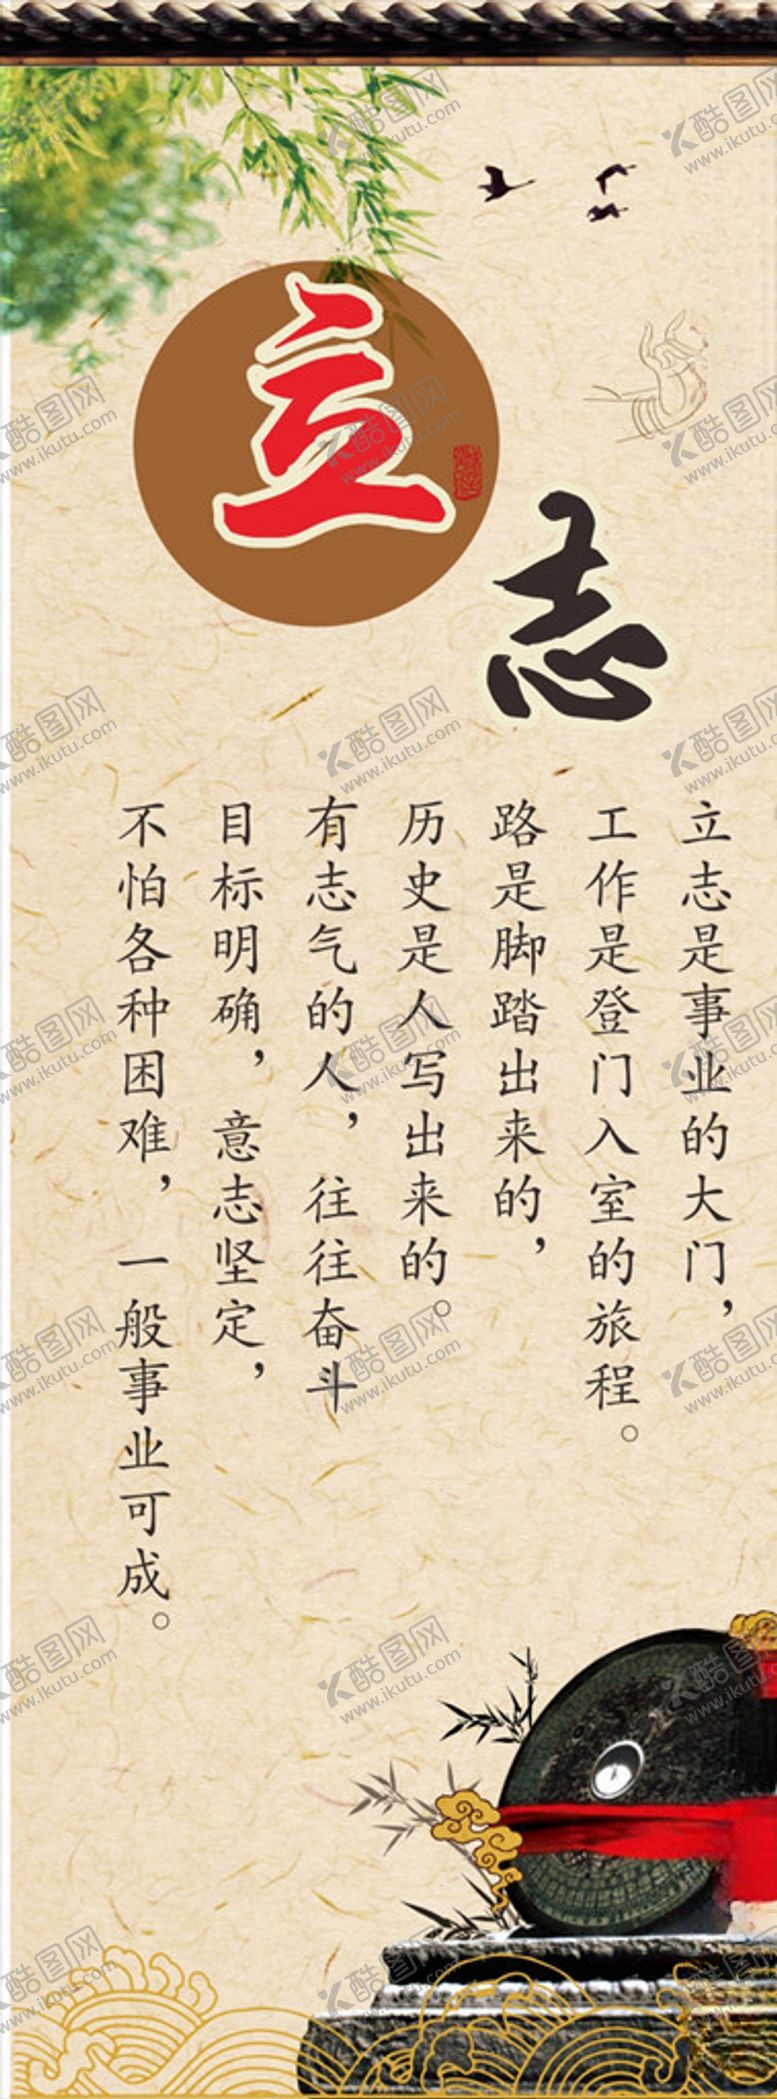 立志
立志是事业的大门，
工作是登门入室的旅程。
路是脚踏出来的，
历史是人写出来的。
有志气的人，往往奋斗
目标明确，意志坚定，
不怕各种困难，一般事业可成。
酷图网
www.ikutu.com